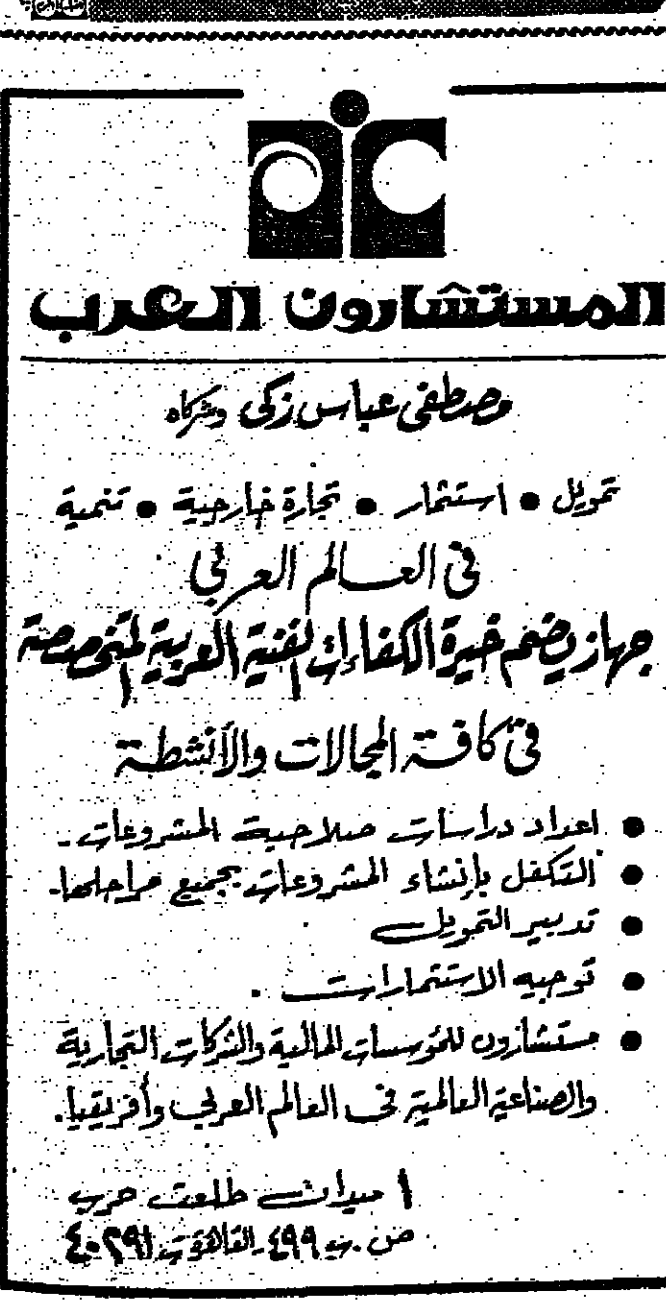 المستشارون العرب
مصطفى عباس زكى وشركاه
تمويل • استثمار • تجارة خارجية • تنمية
فى العالم العربي
جهاز يضم خيرة الكفاءات الفنية العربية المتخصصة
فى كافة المجالات والأنشطة
• اعداد دراسات صلاحية المشروعات.
• التكفل بإنشاء المشروعات بجميع مراحلها.
• تدبير التمويل
• توجيه الاستثمارات.
• مستشارون للمؤسسات المالية والشركات التجارية
والصناعية العالمية فى العالم العربي وأفريقيا.
١ ميدان طلعت حرب
ص. ب ٤٩٩ القاهرة ت